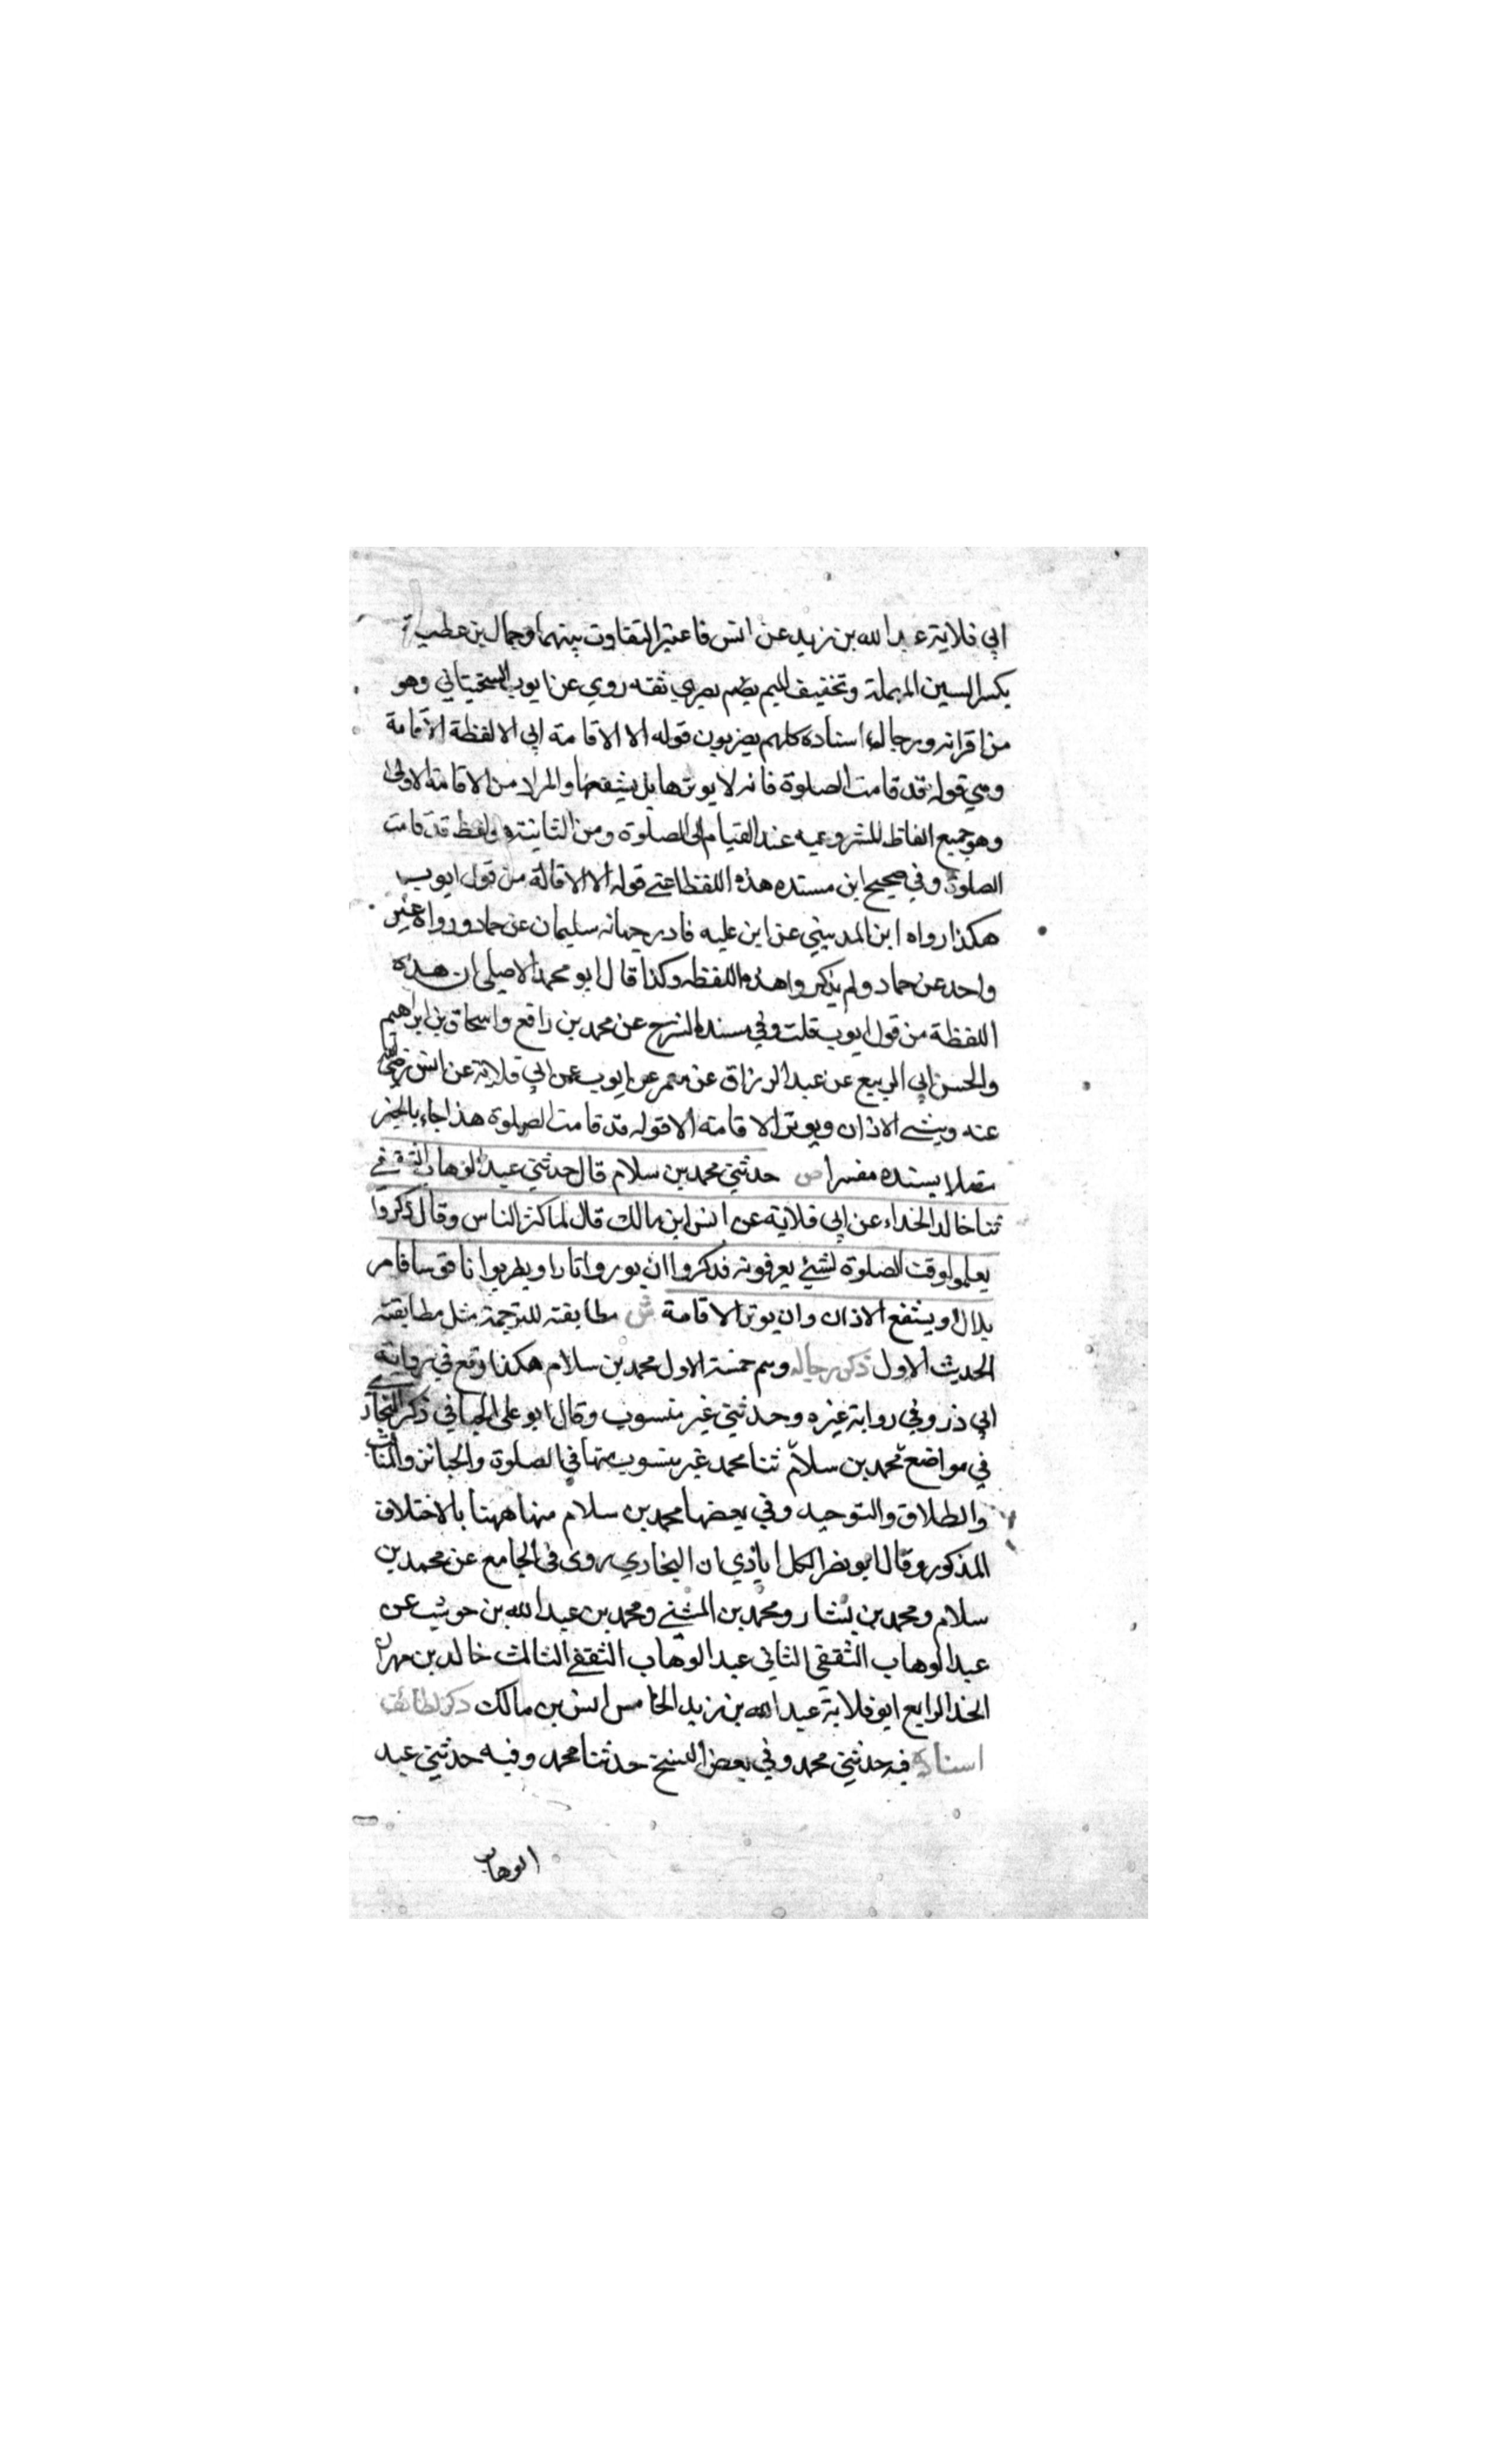 ابي قلابة عبد الله بن زيد عن انس فاعتبر التفاوت بينهما وجمال بن عطية
بكسر السين المهملة وتخفيف الميم بصري ثقه روي عن ايوب السختياني وهو
من اقرانه ورجال اسناده كلهم بصريون قوله الا الاقامة اي الا لفظة الاقامة
وهي قوله قد قامت الصلوة فانه لا يوترها بل يشفعها والمراد من الاقامة الاولى
وهو جميع الفاظ المشروعيه عند القيام الى الصلوة ومن الثانية لفظ قد قامت
الصلوة وفي صحيح ابن مسنده هذه اللفظة اعني قوله الا الاقالة من قول ايوب
هكذا رواه ابن المديني عن ابن عليه فادرجهانه سليمان عن حماد ورواه غير
واحد عن حماد ولم يذكروا هذه اللفظه وكذا قال ابو محمد الاصيلي ان هذه
اللفظة من قول ايوب قلت وفي مسند السرج عن محمد بن رافع واسحاق بن ابراهيم
والحسن ابي الربيع عن عبد الرزاق عن معمر عن ايوب عن ابي قلابة عن انس رضي الله
عنه ويثنى الاذان ويوتر الاقامه الا قوله قد قامت الصلوة هذا جاء بالخبر
متصلا بسنده مفسرا ص حدثني محمد بن سلام قال حدثني عبد الوهاب الثقفي
ثنا خالد الحذاء عن ابي قلابة عن انس ابن مالك قال لما كثر الناس وقال ذكروا
يعلموا وقت الصلوة بشئ يعرفونه فذكروا ان يوروا نارا او يضربوا ناقوسا فامر
بلال ويشفع الاذان وان يوتر الاقامة ش مطابقته للترجمة مثل مطابقته
الحديث الاول ذكر رجاله وهم خمسة الاول محمد بن سلام هكذا وقع في رواية
ابي ذر وفي رواية غيره وحدثني غير منسوب وقال ابو على الجياني ذكر البخاري
في مواضع محمد بن سلام ثنا محمد غير منسوب منها في الصلوة والجنائز والمناقب
والطلاق والتوحيد وفي بعضها محمد بن سلام منها ههنا بالاختلاف
المذكور وقال ابو نصر الكلاباذي ان البخاري روى في الجامع عن محمد بن
سلام ومحمد بن بشار ومحمد بن المثنى ومحمد بن عبد الله بن حوشب عن
عبد الوهاب الثقفي الثاني عبد الوهاب الثقفي الثالث خالد بن مهران
الحذا الرابع ابو قلابة عبد الله بن زيد الخامس انس بن مالك ذكر لطائف
اسناده فيه حدثني محمد وفي بعض النسخ حدثنا محمد وفيه حدثني عبد
الوهاب